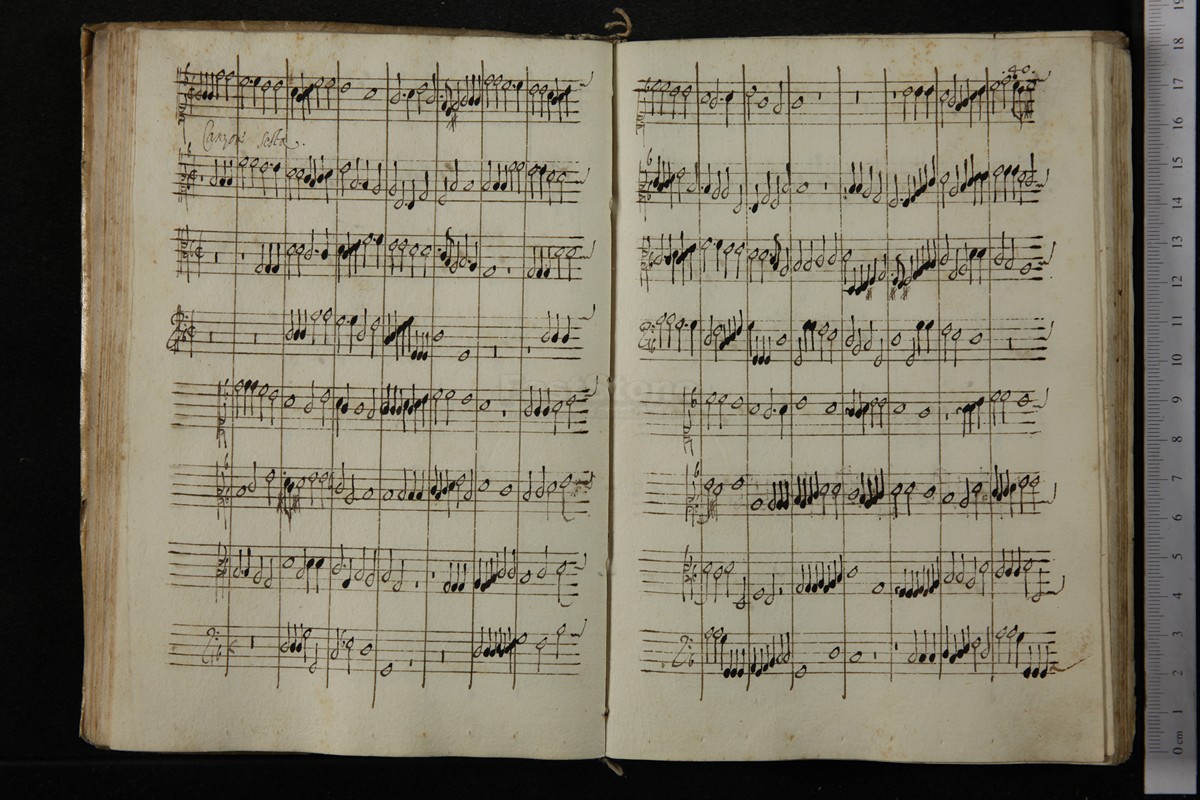 Canzon sesta.
40.
0 cm 1 2 3 4 5 6 7 8 9 10 11 12 13 14 15 16 17 18 19